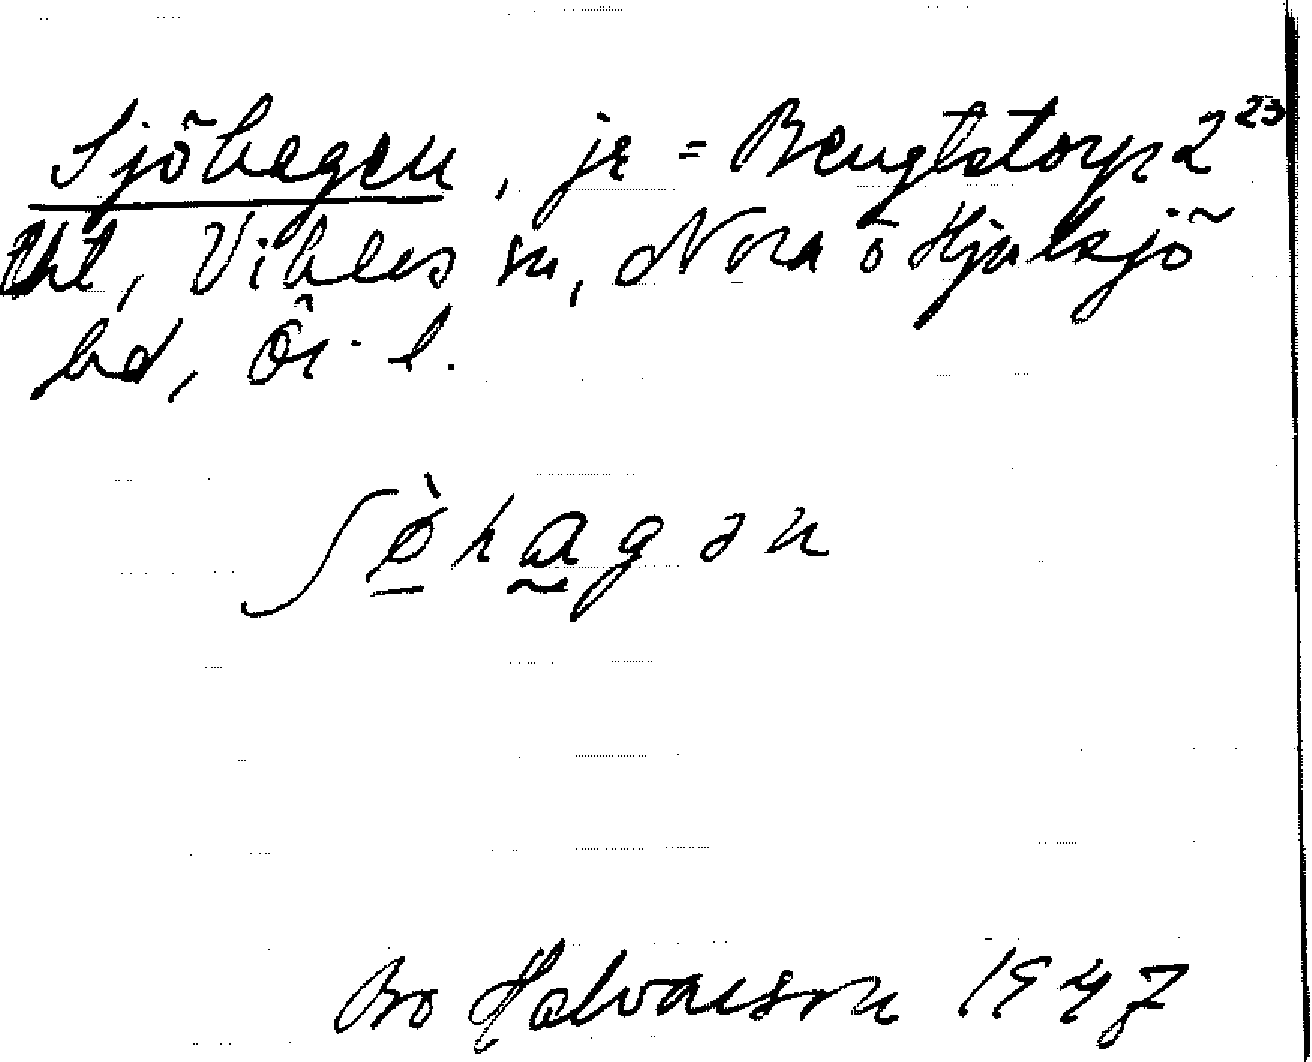 Sjöhagen, je = Bengtstorp 2²³
Vikers sn, Nora o Hjulsjö
bd, Ör. l.
ʃöhagən
Bo Halvarson 1947